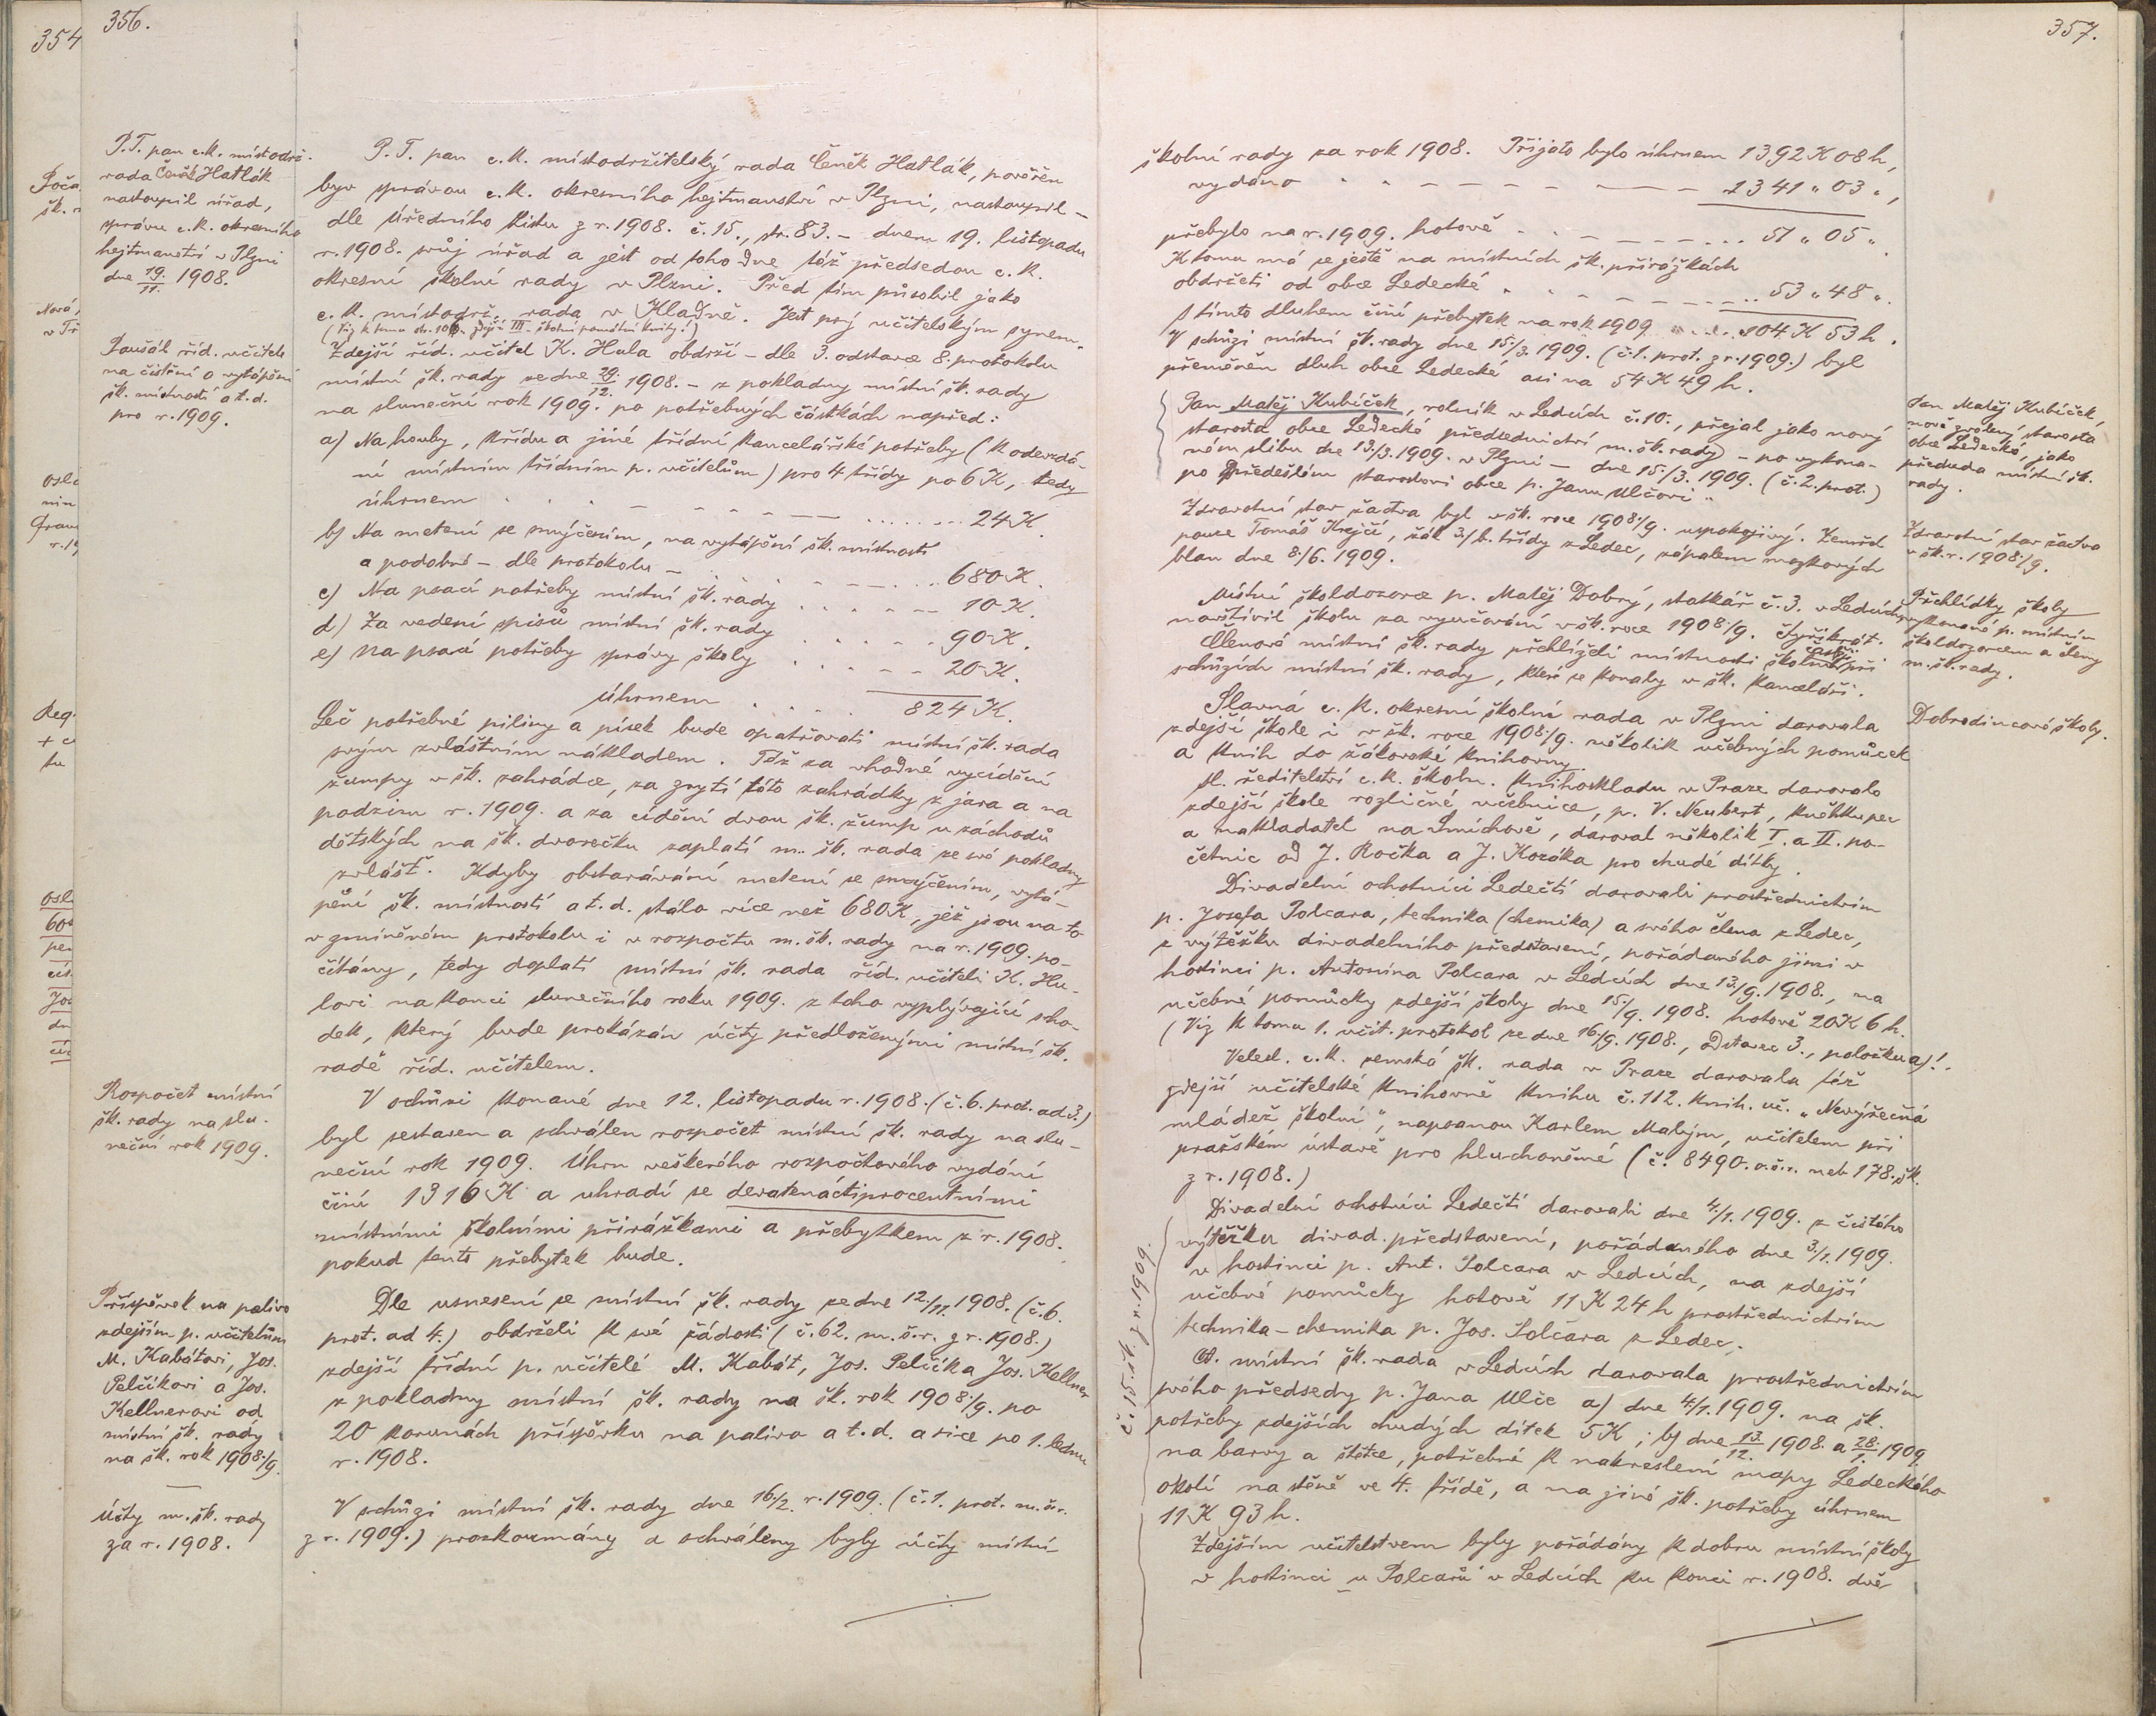 356.
P. T. pan c. k. místodrž.
rada Čeněk Hatlák
nastoupil úřad,
správu c. k. okresního
hejtmanství v Plzni
dne 19./11. 1908.
P. T. pan c. k. místodržitelský rada Čeněk Hatlák, pověřen
byv správou c. k. okresního hejtmanství v Plzni, nastoupil –
dle Úředního listu z r. 1908. č. 15., str. 83. – dnem 19. listopadu
r. 1908. svůj úřad a jest od toho dne též předsedou c. k.
okresní školní rady v Plzni. Před tím působil jako
c. k. místodrž. rada v Kladně. Jest prý učitelským synem.
(Viz k tomu str. zdejší III. školní pamětní knihy!)
Paušál říd. učitele
na čistění a vytápění
šk. místností a t. d.
pro r. 1909.
Zdejší říd. učitel K. Hula obdrží – dle 3. odstavce 8. protokolu
místní šk. rady ze dne 29./12. 1908. – z pokladny místní šk. rady
na sluneční rok 1909. po potřebných částkách napřed:
a) Na houby, křídu a jiné třídní kancelářské potřeby (k odevzdá-
ní místním třídním p. učitelům) pro 4 třídy po 6 K, tedy
úhrnem . . . – – – – – ....... 24 K.
b) Na metení se smýčením, na vytápění šk. místností
a podobně – dle protokolu – . . . . – – – ... 680 K.
c) Na psací potřeby místní šk. rady . . . . – – 10 K.
d) Za vedení spisů místní šk. rady . . . . . . 90 K.
e) Na psací potřeby správy školy . . . . – – 20 K.
Úhrnem . . . . . 824 K.
Leč potřebné piliny a písek bude opatřovati místní šk. rada
svým zvláštním nákladem. Též za vhodné vycídění
žumpy v šk. zahrádce, za zrytí této zahrádky z jara a na
podzim r. 1909. a za cídění dvou šk. žump u záchodů
dětských na šk. dvorečku zaplatí m. šk. rada ze své pokladny
zvlášť. Kdyby obstarávání metení se smýčením, vytá-
pění šk. místností a t. d. stálo více než 680 K, jež jsou na to
v zmíněném protokolu i v rozpočtu m. šk. rady na r. 1909. po-
čítány, tedy doplatí místní šk. rada říd. učiteli K. Hu-
lovi na konci slunečního roku 1909. z toho vyplývající scho-
dek, který bude prokázán účty předloženými místní šk.
radě říd. učitelem.
Rozpočet místní
šk. rady na slu-
neční rok 1909.
V schůzi konané dne 12. listopadu r. 1908. (č. 6. prot. ad 3.)
byl sestaven a schválen rozpočet místní šk. rady na slu-
neční rok 1909. Úhrn veškerého rozpočtového vydání
činí 1316 K a uhradí se devatenáctiprocentními
místními školními přirážkami a přebytkem z r. 1908.
pokud tento přebytek bude.
Příspěvek na palivo
zdejším p. učitelům
M. Kabátovi, Jos.
Pelčíkovi a Jos.
Kellnerovi od
místní šk. rady
na šk. rok 1908./9.
Dle usnesení se místní šk. rady ze dne 12./11. 1908. (č. 6.
prot. ad 4.) obdrželi k své žádosti (č. 62. m. š. r. z r. 1908.)
zdejší třídní p. učitelé M. Kabát, Jos. Pelčík a Jos. Kellner
z pokladny místní šk. rady na šk. rok 1908./9. po
20 korunách příspěvku na palivo a t. d. a sice po 1. lednu
r. 1908.
Účty m. šk. rady
za r. 1908.
V schůzi místní šk. rady dne 16./2. r. 1909. (č. 1. prot. m. š. r.
z r. 1909.) prozkoumány a schváleny byly účty místní
357.
školní rady za rok 1908. Přijato bylo úhrnem 1392 K 08 h,
vydáno . . – – – – – – – 1341 „ 03 „,
přebylo na r. 1909. hotově . . . – – – – ... 51 „ 05 „.
K tomu má se ještě na místních šk. přirážkách
obdržeti od obce Ledecké . . . – – – – – ... 53 „ 48 „.
S tímto dluhem činí přebytek na rok 1909 104 K 53 h.
V schůzi místní šk. rady dne 15./3. 1909. (č. 1. prot. z r. 1909.) byl
přeměněn dluh obce Ledecké asi na 54 K 49 h.
Pan Matěj Kubíček, rolník v Ledcích č. 10., přejal jako nový
starosta obce Ledecké předsednictví m. šk. rady – po vykona-
ném slibu dne 13/3. 1909. v Plzni – dne 15./3. 1909. (č. 2. prot.)
po předešlém starostovi obce p. Janu Ulčovi.
Pan Matěj Kubíček,
nově zvolený starosta
obce Ledecké, jako
předseda místní šk.
rady.
Zdravotní stav žactva byl v šk. roce 1908./9. uspokojivý. Zemřel
pouze Tomáš Krejčí, žák 3./b. třídy z Ledec, zápalem mozkových
blan dne 8./6. 1909.
Zdravotní stav žactva
v šk. r. 1908./9.
Místní školdozorce p. Matěj Dobrý, statkář č. 3. v Ledcích,
navštívil školu za vyučování v šk. roce 1908./9. čtyřikrát.
Členové místní šk. rady přehlíželi místnosti školní častěji při
schůzích místní šk. rady, které se konaly v šk. kanceláři.
Přehlídky školy
vykonané p. místním
školdozorcem a členy
m. šk. rady.
Slavná c. k. okresní školní rada v Plzni darovala
zdejší škole i v šk. roce 1908./9. několik učebných pomůcek
a knih do žákovské knihovny.
Dobrodincové školy.
Sl. ředitelství c. k. školn. knihoskladu v Praze darovalo
zdejší škole rozličné učebnice, p. V. Neubert, kněhkupec
a nakladatel na Smíchově, daroval několik I. a II. po-
četnic od J. Ročka a J. Kozáka pro chudé dítky.
Divadelní ochotníci Ledečtí darovali prostřednictvím
p. Josefa Polcara, technika (chemika) a svého člena z Ledec,
z výtěžku divadelního představení, pořádaného jimi v
hostinci p. Antonína Polcara v Ledcích dne 13./9. 1908., na
učebné pomůcky zdejší školy dne 15./9. 1908. hotově 20 K 6 h.
(Viz k tomu 1. učit. protokol ze dne 16./9. 1908., odstavec 3., položku a)!.
Veleсl. c. k. zemská šk. rada v Praze darovala též
zdejší učitelské knihovně knihu č. 112. knih. uč. „Nevýřečná
mládež školní“, napsanou Karlem Malým, učitelem při
pražském ústavě pro hluchoněmé (č. 8490. o. š. r. neb 178. šk.
z r. 1908.)
č. 15. šk. z r. 1909.
Divadelní ochotníci Ledečtí darovali dne 4./1. 1909. z čistého
výtěžku divad. představení, pořádaného dne 3./1. 1909.
v hostinci p. Ant. Polcara v Ledcích, na zdejší
učebné pomůcky hotově 11 K 24 h prostřednictvím
technika-chemika p. Jos. Polcara z Ledec.
Sl. místní šk. rada v Ledcích darovala prostřednictvím
svého předsedy p. Jana Ulče a) dne 4./1. 1909. na šk.
potřeby zdejších chudých dítek 5 K; b) dne 13./12. 1908. a 28./1. 1909.
na barvy a štětce, potřebné k nakreslení mapy Ledeckého
okolí na stěně ve 4. třídě, a na jiné šk. potřeby úhrnem
11 K 93 h.
Zdejším učitelstvem byly pořádány k dobru místní školy
v hostinci „u Polcarů“ v Ledcích ku konci r. 1908. dvě